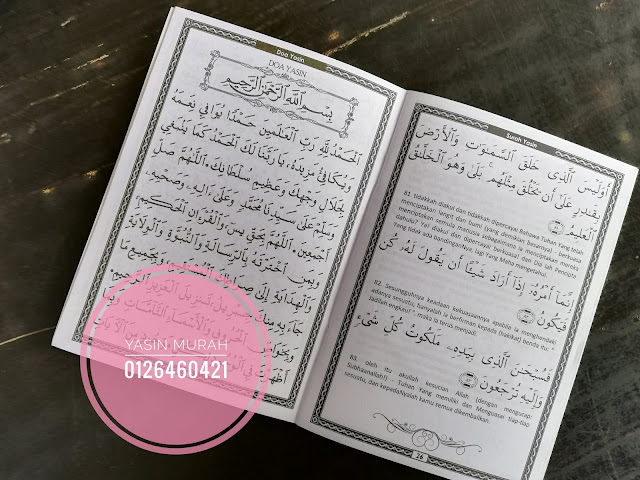 Surah Yasin
أَوَلَيْسَ ٱلَّذِى خَلَقَ ٱلسَّمَٰوَٰتِ وَٱلْأَرْضَ
بِقَٰدِرٍ عَلَىٰٓ أَن يَخْلُقَ مِثْلَهُم ۚ بَلَىٰ وَهُوَ ٱلْخَلَّٰقُ
ٱلْعَلِيمُ ٨١
81. tidakkah diakui dan tidakkah dipercayai Bahawa Tuhan Yang telah
menciptakan langit dan bumi (yang demikian besarnya) berkuasa
menciptakan semula manusia sebagaimana ia menciptakan mereka
dahulu? Ya! diakui dan dipercayai berkuasa! dan Dia lah Pencipta
Yang tidak ada bandinganNya, lagi Yang Maha mengetahui.
إِنَّمَآ أَمْرُهُۥٓ إِذَآ أَرَادَ شَيْـًٔا أَن يَقُولَ لَهُۥ كُن
فَيَكُونُ ٨٢
82. Sesungguhnya keadaan kekuasaannya apabila ia menghendaki
adanya sesuatu, hanyalah ia berfirman kepada (hakikat) benda itu:
"Jadilah engkau! ". maka ia terus menjadi.
فَسُبْحَٰنَ ٱلَّذِى بِيَدِهِۦ مَلَكُوتُ كُلِّ شَىْءٍ
وَإِلَيْهِ تُرْجَعُونَ ٨٣
83. oleh itu akuilah kesucian Allah (dengan mengucap:
Subhaanallah!) - Tuhan Yang memiliki dan Menguasai tiap-tiap
sesuatu, dan kepadaNyalah kamu semua dikembalikan.
26
Doa Yasin
DOA YASIN
بِسْمِ ٱللَّهِ ٱلرَّحْمَٰنِ ٱلرَّحِيمِ
اَلْحَمْدُ لِلّٰهِ رَبِّ الْعٰلَمِينَ حَمْدًا يُوَافِي نِعَمَهُ
وَيُكَافِئُ مَزِيدَهُ، يَا رَبَّنَا لَكَ الْحَمْدُ كَمَا يَنْبَغِي
لِجَلَالِ وَجْهِكَ وَعَظِيمِ سُلْطَانِكَ، اَللّٰهُمَّ صَلِّ
وَسَلِّمْ عَلَى سَيِّدِنَا مُحَمَّدٍ وَعَلَى آلِهِ وَصَحْبِهِ
أَجْمَعِينَ، اَللّٰهُمَّ بِحَقِّ يس وَالْقُرْآنِ الْحَكِيمِ
وَبِمَنِ اخْتَرْتَهُ بِالرِّسَالَةِ وَالنُّبُوَّةِ وَالْوِلَايَةِ
وَالْهِدَايَةِ إِلَى
YASIN MURAH
0126460421